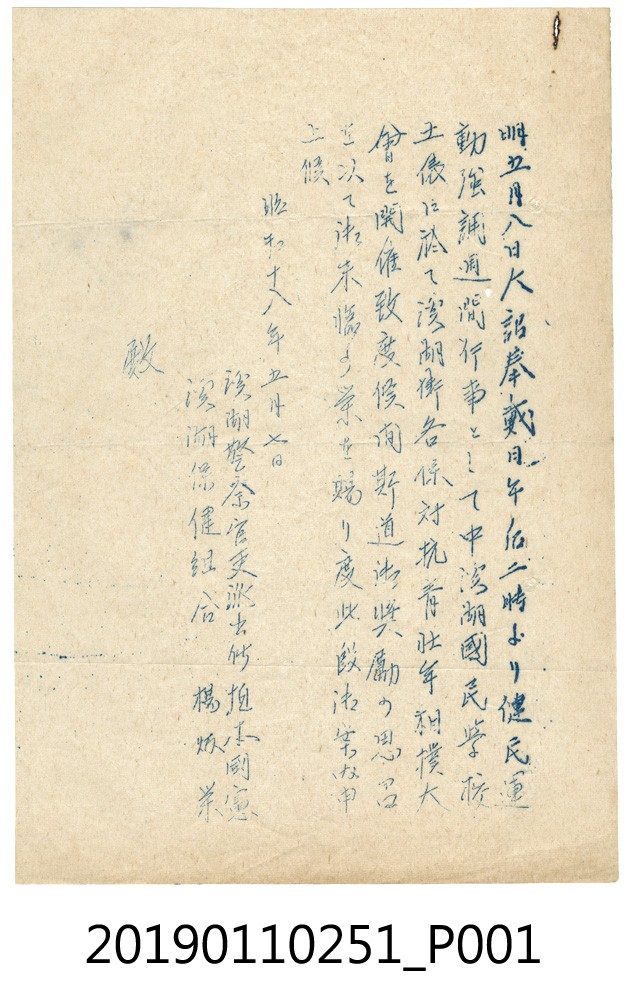 明五月八日大詔奉戴日午后二時より健民運
動強調週間行事として中溪湖國民學校
土俵に於て溪湖街各保対抗青壮年相撲大
會を開催致度候間斯道御奨勵の思召
を以て御来臨の榮を賜り度此段御案內申
上候
昭和十八年五月七日
溪湖警察官吏派出所 植木國憲
溪湖保健組合 楊炳榮
殿
20190110251_P001